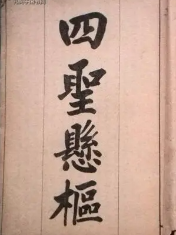 四聖懸樞